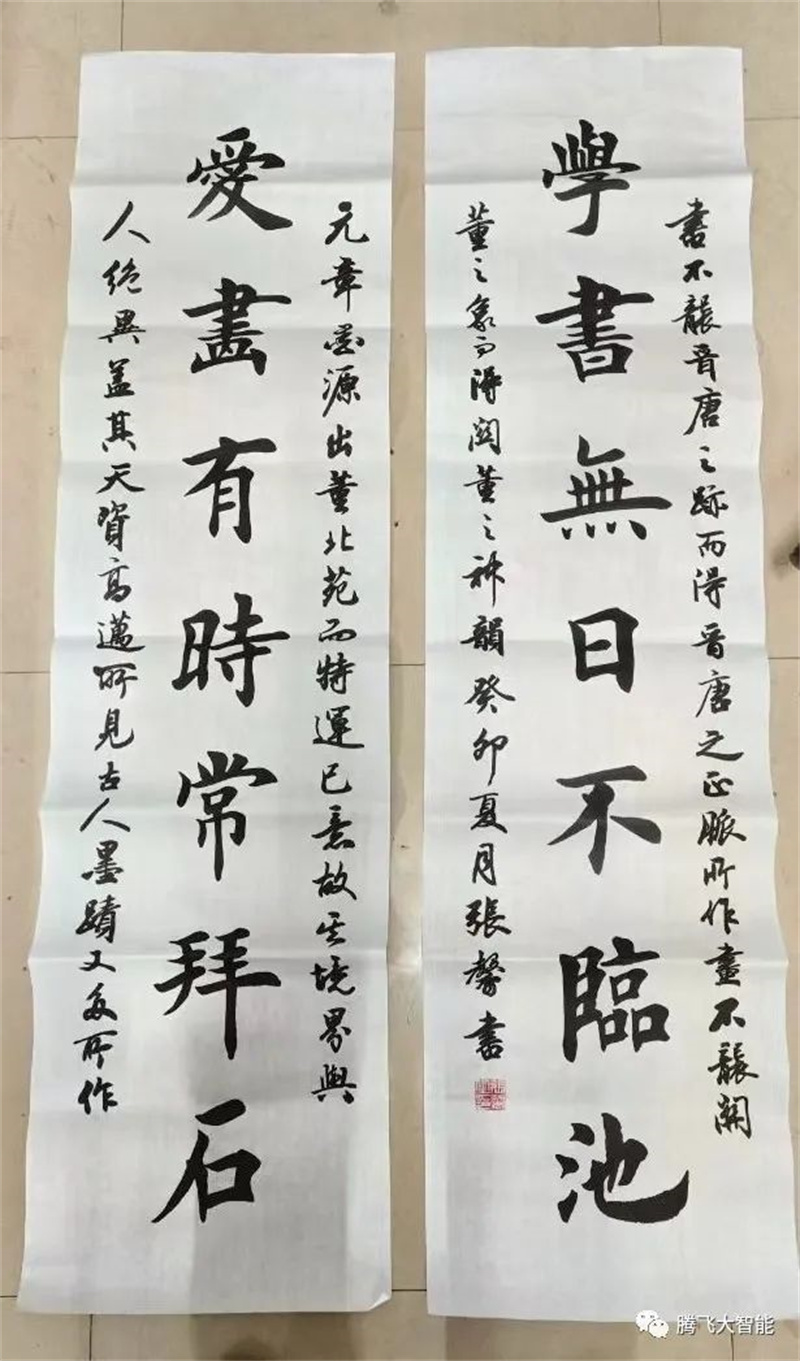 元章画源出董北苑而特運己意故其境界與
愛畫有時常拜石
人絶異蓋其天資高邁所見古人墨蹟又多所作
書不襲晋唐之跡而得晋唐之正脈所作畫不襲關
學書無日不臨池
董之象而得関董之神韻癸卯夏月張馨書
腾飞大智能